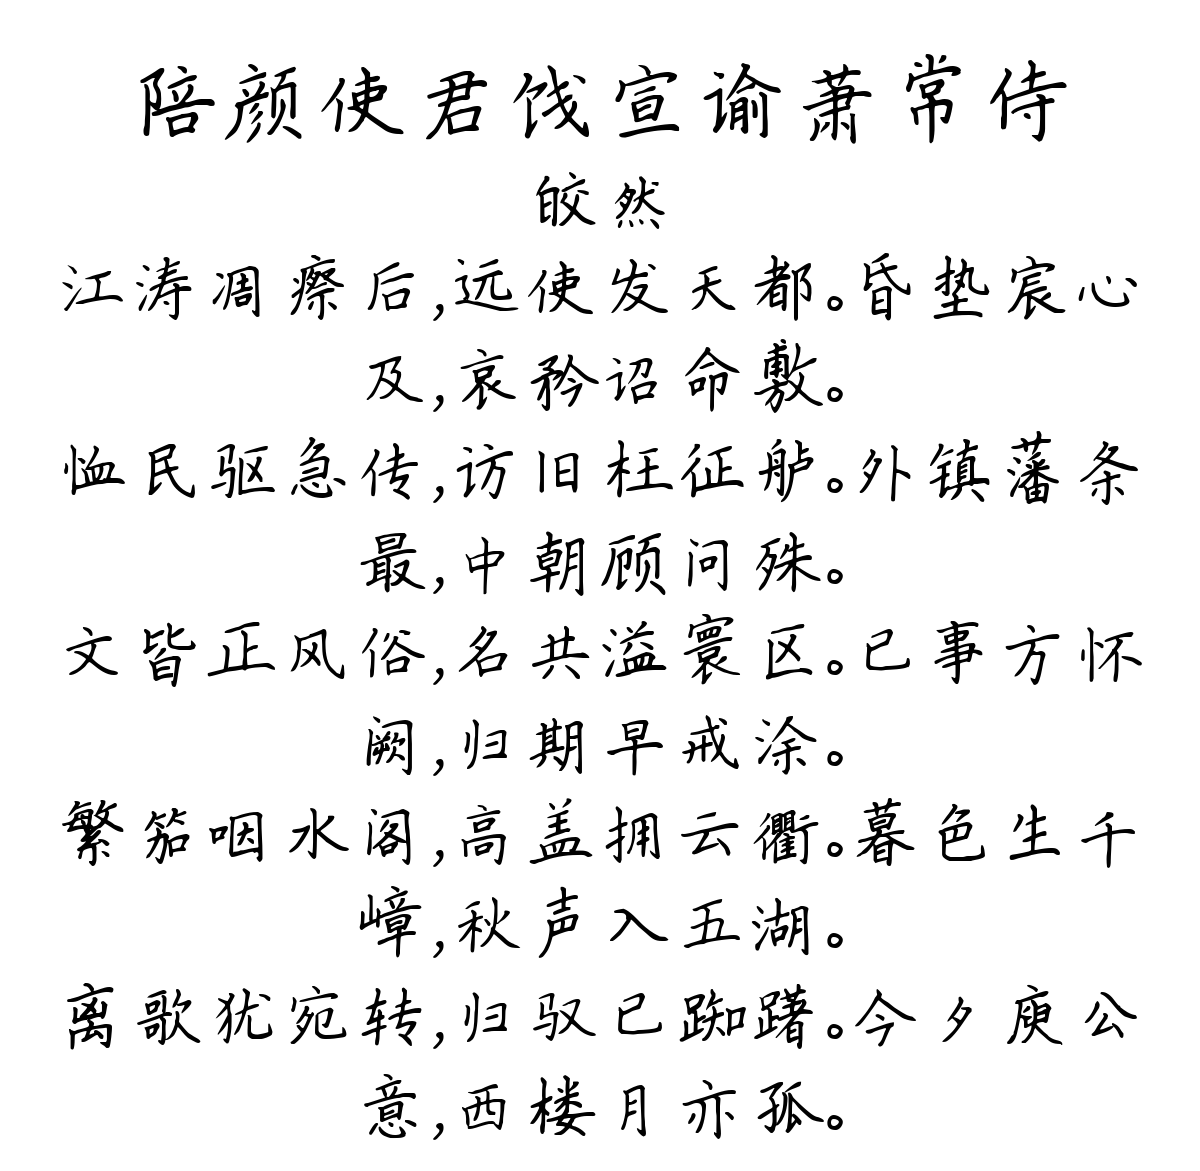 陪颜使君饯宣谕萧常侍
皎然
江涛凋瘵后,远使发天都。昏垫宸心
及,哀矜诏命敷。
恤民驱急传,访旧枉征舻。外镇藩条
最,中朝顾问殊。
文皆正风俗,名共溢寰区。已事方怀
阙,归期早戒涂。
繁笳咽水阁,高盖拥云衢。暮色生千
嶂,秋声入五湖。
离歌犹宛转,归驭已踟躇。今夕庾公
意,西楼月亦孤。